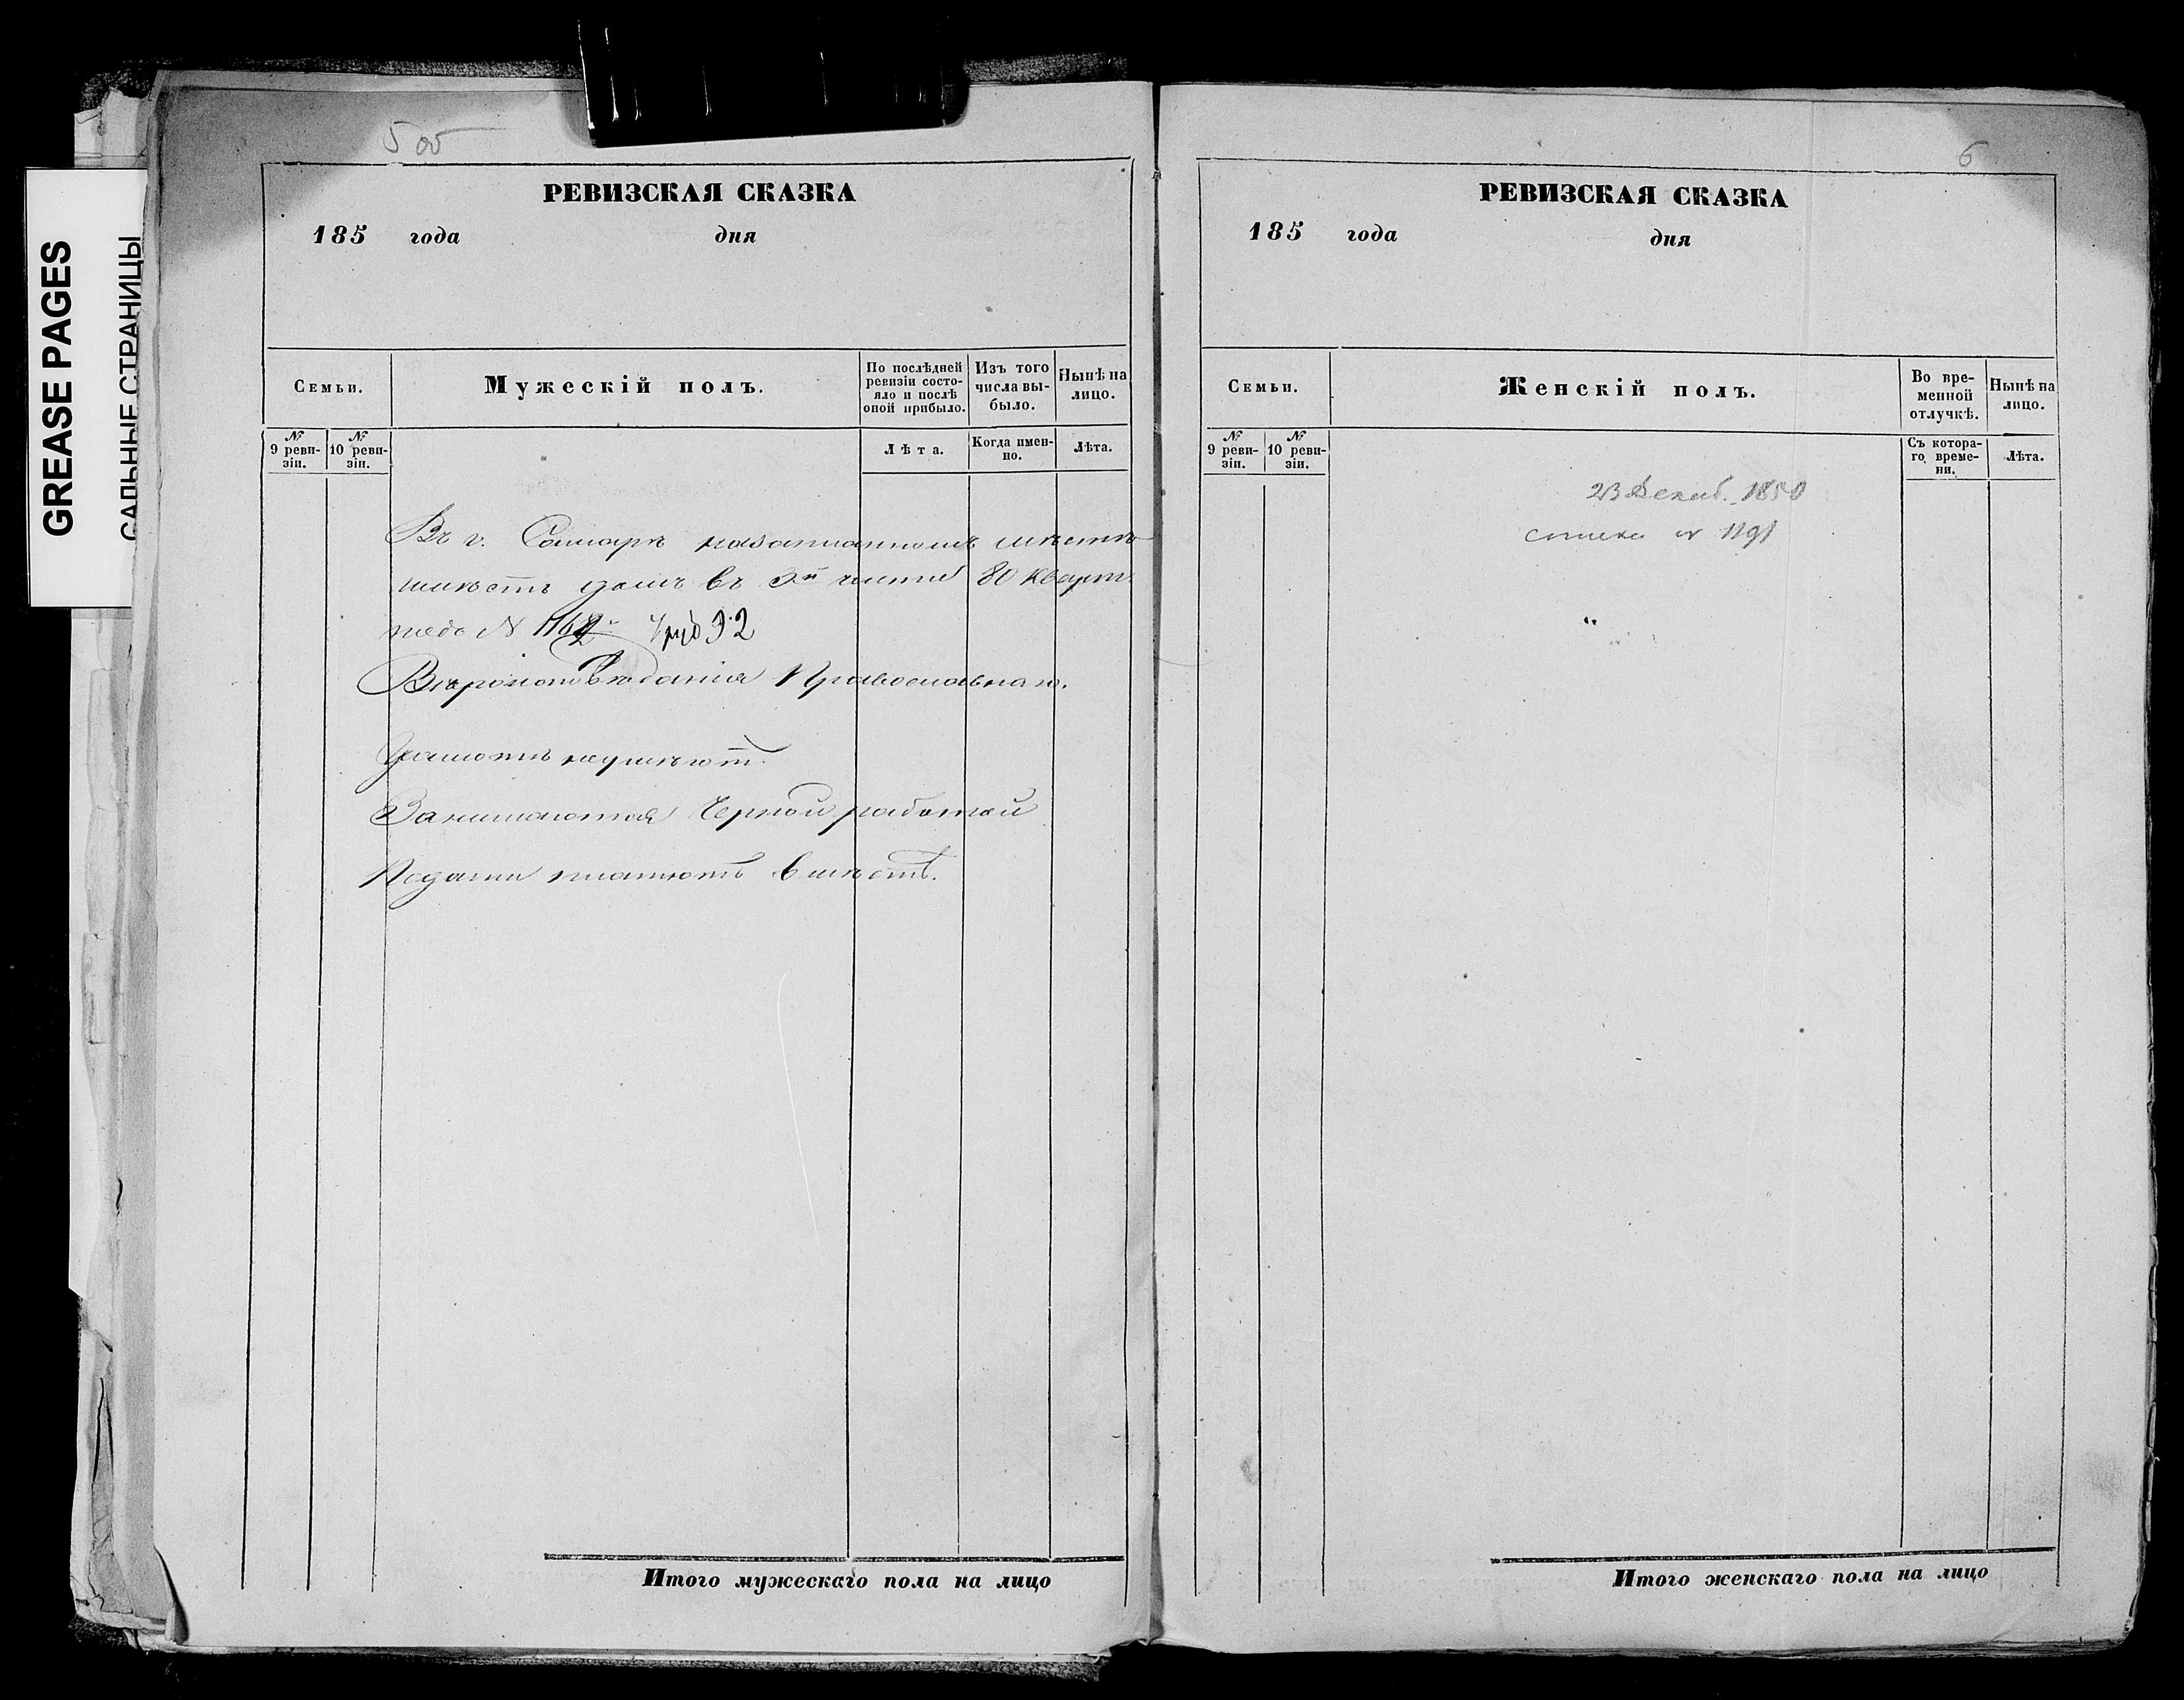 GREASE PAGES
САЛЬНЫЕ СТРАНИЦЫ
5 об
РЕВИЗСКАЯ СКАЗКА
185 года дня
Семьи.
Мужескій полъ.
По послѣдней ревизіи состояло и послѣ оной прибыло.
Изъ того числа выбыло.
Нынѣ на лицо.
№ 9 ревизіи.
№ 10 ревизіи.
Лѣта.
Когда именно.
Лѣта.
Въ г. Самарѣ
имѣетъ домъ въ 3й части 80 кварт.
№ 116 руб
Вѣроисповѣданія Православнаго.
Грамотѣ неумѣютъ.
Занимаются Черной работой
Подати платютъ
Итого мужескаго пола на лицо
6
РЕВИЗСКАЯ СКАЗКА
185 года дня
Семьи.
Женскій полъ.
Во временной отлучкѣ.
Нынѣ на лицо.
№ 9 ревизіи.
№ 10 ревизіи.
Съ котораго времени.
Лѣта.
23 Декаб. 1850
1191
Итого женскаго пола на лицо